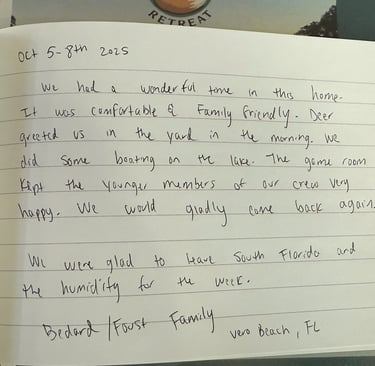 RETREAT
Oct 5-8th 2025
We had a wonderful time in this home.
It was comfortable & Family Friendly. Deer
greeted us in the yard in the morning. We
did some boating on the lake. The game room
Kept the younger members of our crew very
happy. We would gladly come back again.
We were glad to leave South Florida and
the humidity for the week.
Bedard/Foust Family
Vero Beach, FL